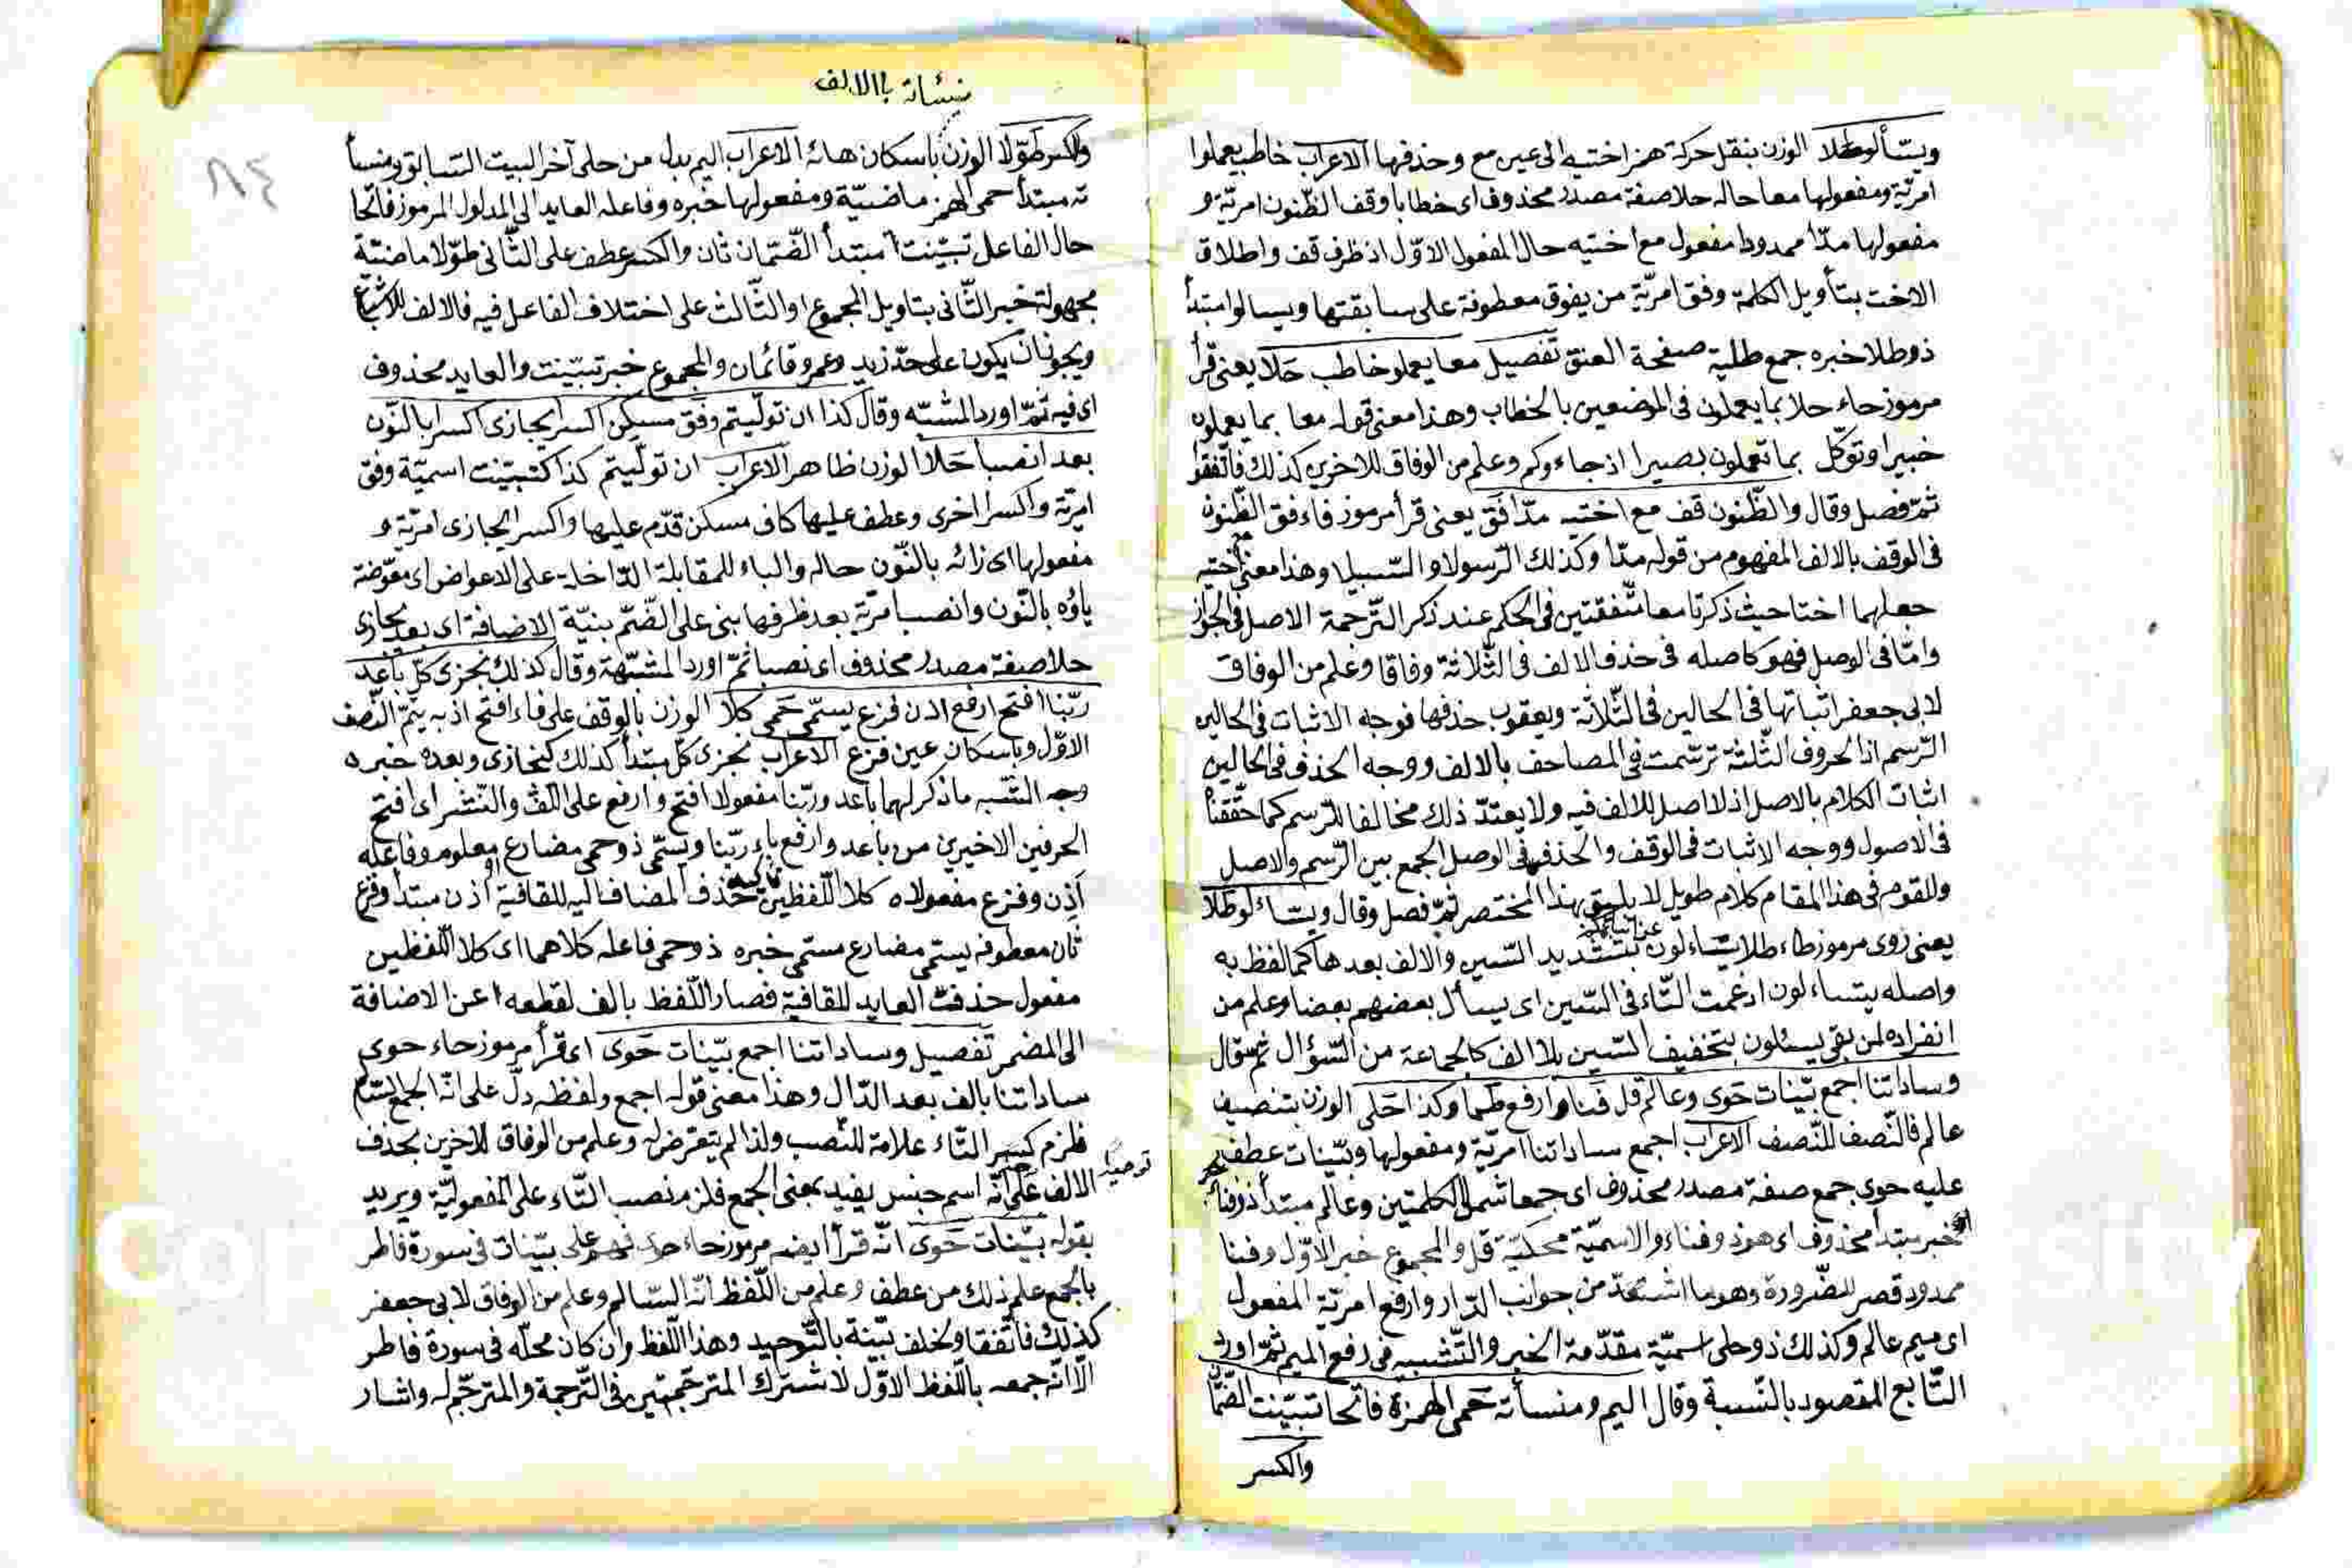 ويسّألو طلا الوزن بنقل حركة همز اختيه الى عين مع وحذفها الاعراب خاطب يعملوا
امريّة ومفعولها معا حاله حلا صفة مصدر محذوف اى خطابا وقف الظّنون امريّة و
مفعولها مدّا ممدودا مفعول مع اختيه حال المفعول الاوّل اذ ظرف قف واطلاق
الاخت بتأويل الكلمة وفق امريّة من يفوق معطوفة على سابقتها ويسالوا مبتدأ
ذو طلا خبره جمع طلية صفحة العنق تفصيل معا يعملو خاطب حَلا يعنى قرأ
مرموز حاء حلا بما يعملون فى الموضعين بالخطاب وهذا معنى قوله معا بما يعملون
خبيرا وتوكّل بما تعملون بصيرا اذ جاءوكم وعلم من الوفاق للاخرين كذلك فاتّفقوا
ثمّ فصل وقال والظّنون قف مع اختيه مدّا فَق يعنى قرأ مرموز فاء فق الظّنون
فى الوقف بالالف المفهوم من قوله مدّا وكذلك الرّسولا والسّبيلا وهذا معنى اختيه
جعلهما اختا حيث ذكرتا معا متّفقتين فى الحكم عند ذكر التّرجمة الاصل فى الجواز
وامّا فى الوصل فهو كاصله فى حذف الالف فى الثّلاثة وفاقا وعلم من الوفاق
لابى جعفر اثباتها فى الحالين فى الثّلاثة ويعقوب حذفها فوجه الاثبات فى الحالين
الرّسم اذ الحروف الثّلثة ترسّمت فى المصاحف بالالف ووجه الحذف فى الحالين
اثبات الكلام بالاصل اذ لا اصل للالف فيه ولا يعتدّ ذلك مخالفا للرّسم كما حقّقنا
فى الاصول ووجه الاثبات فى الوقف والحذف فى الوصل الجمع بين الرّسم والاصل
وللقوم فى هذا المقام كلام طويل لا يليق بهذا المختصر ثمّ فصل وقال ويسّاءلو طلا
يعنى روى مرموز طاء طلا يسّاءلون بتشديد السّين والالف بعدها كما لفظ به
واصله يتساءلون ادغمت التّاء فى السّين اى يسأل بعضهم بعضا وعلم من
انفراده لمن بقى يسئلون بتخفيف السّين بلا الف كالجماعة من السّؤال ثم قال
وساداتنا اجمع بيّنات حَوى وعالم قل فنا وارفع طما وكذا حَلى الوزن بتنصيف
عالم فالنّصف للنّصف الاعراب اجمع ساداتنا امريّة ومفعولها وبيّنات عطف
عليه حوى جمع صفة مصدر محذوف اى جمعا شمل الكلمتين وعالم مبتدأ ذو فناء
خبر مبتدأ محذوف اى هو ذو فناء والاسميّة محكيّة قل والمجموع خبر الاوّل وفنا
ممدود قصر للضّرورة وهو ما امتدّ من جوانب الدّار وارفع امريّة المفعول
اى ميم عالم وكذلك ذو حلى اسميّة مقدّمة الخبر والتّشبيه فى رفع الميم ثمّ اورد
التّابع المقصود بالنّسبة وقال اليم ومنسأته حَمى الهمزة فاتحا تبيّنت الضّمّا
والكسر
منسأته بالالف
والكسر طوّلا الوزن باسكان هائه الاعراب اليم بدل من حلى آخر البيت السّابق ومنسأ
ته مبتدأ حمى الهمز ماضيّة ومفعولها خبره وفاعله العايد الى المدلول المرموز فاتحا
حال الفاعل تبيّنت مبتدأ الضّمّان ثان والكسر عطف على الثّانى طوّلا ماضيّة
مجهولة خبر الثّانى بتاويل المجموع او الثّالث على اختلاف الفاعل فيه فالالف للاشباع
ويجوز ان يكون على حدّ زيد وعمرو قائمان والمجموع خبر تبيّنت والعايد محذوف
اى فيه ثمّ اورد المشبّه وقال كذا ان تولّيتم وفق مسكن اكسر يجازى اكسرا بالنّون
بعد انصبا حَلا الوزن ظاهر الاعراب ان تولّيتم كذا كتبيّنت اسميّة وفق
امريّة واكسرا اخرى وعطف عليها كاف مسكن قدّم عليها واكسر يجازى امريّة و
مفعولها اى زائه بالنّون حاله والباء للمقابلة الدّاخلة على الاعواض اى معوّضة
ياؤه بالنّون وانصبا مريّة بعد ظرفها بنى على الضّمّ بنيّة الاضافة اى بعد يجازى
حلا صفة مصدر محذوف اى نصبا ثمّ اورد المشبّهة وقال كذلك نجزى كلّ باعد
ربّنا افتح ارفع اذن فزع يسمّى حَمى كلا الوزن بالوقف على فاء افتح اذ به يتمّ النّصف
الاوّل وباسكان عين فزع الاعراب نجزى كلّ مبتدأ كذلك كنجازى وبعده خبره
وجه الشّبه ما ذكر لهما باعد وربّنا مفعولا افتح وارفع على اللّفّ والنّشر اى افتح
الحرفين الاخيرين من باعد وارفع باء ربّنا ويسمّى ذو حمى مضارع معلوم وفاعله
اذن وفزع مفعولاه كلا اللّفظين تاكيد حذف المضاف اليه للقافية او اذن مبتدأ وفزع
ثان معطوفه يسمّى مضارع مسمّى خبره ذو حمى فاعله كلاهما اى كلا اللّفظين
مفعول حذفت العايد للقافية فصار اللّفظ بالف لقطعه عن الاضافة
الى المضمر تفصيل وساداتنا اجمع بيّنات حَوى اى قرأ مرموز حاء حوى
ساداتنا بالف بعد الدّال وهذا معنى قوله اجمع ولفظه دلّ على انّه الجمع السّالم
فلزم كسر التّاء علامة للنّصب ولذا لم يتعرّض له وعلم من الوفاق للاخرين بحذف
توحيدا
الالف على انّه اسم جنس يفيد معنى الجمع فلزم نصب التّاء على المفعوليّة ويريد
بقوله بيّنات حَوى انّه قرأ ايضم مرموز حاء حوى فهم على بيّنات فى سورة فاطر
بالجمع علم ذلك من عطف وعلم من اللّفظ انّه السّالم وعلم من الوفاق لابى جعفر
كذلك فاتّفقا ولخلف بيّنة بالتّوحيد وهذا اللّفظ وان كان محلّه فى سورة فاطر
الّا انّه جمعه باللّفظ الاوّل لاشتراك المترجمتين فى التّرجمة والمترجم له واشار
٨٤